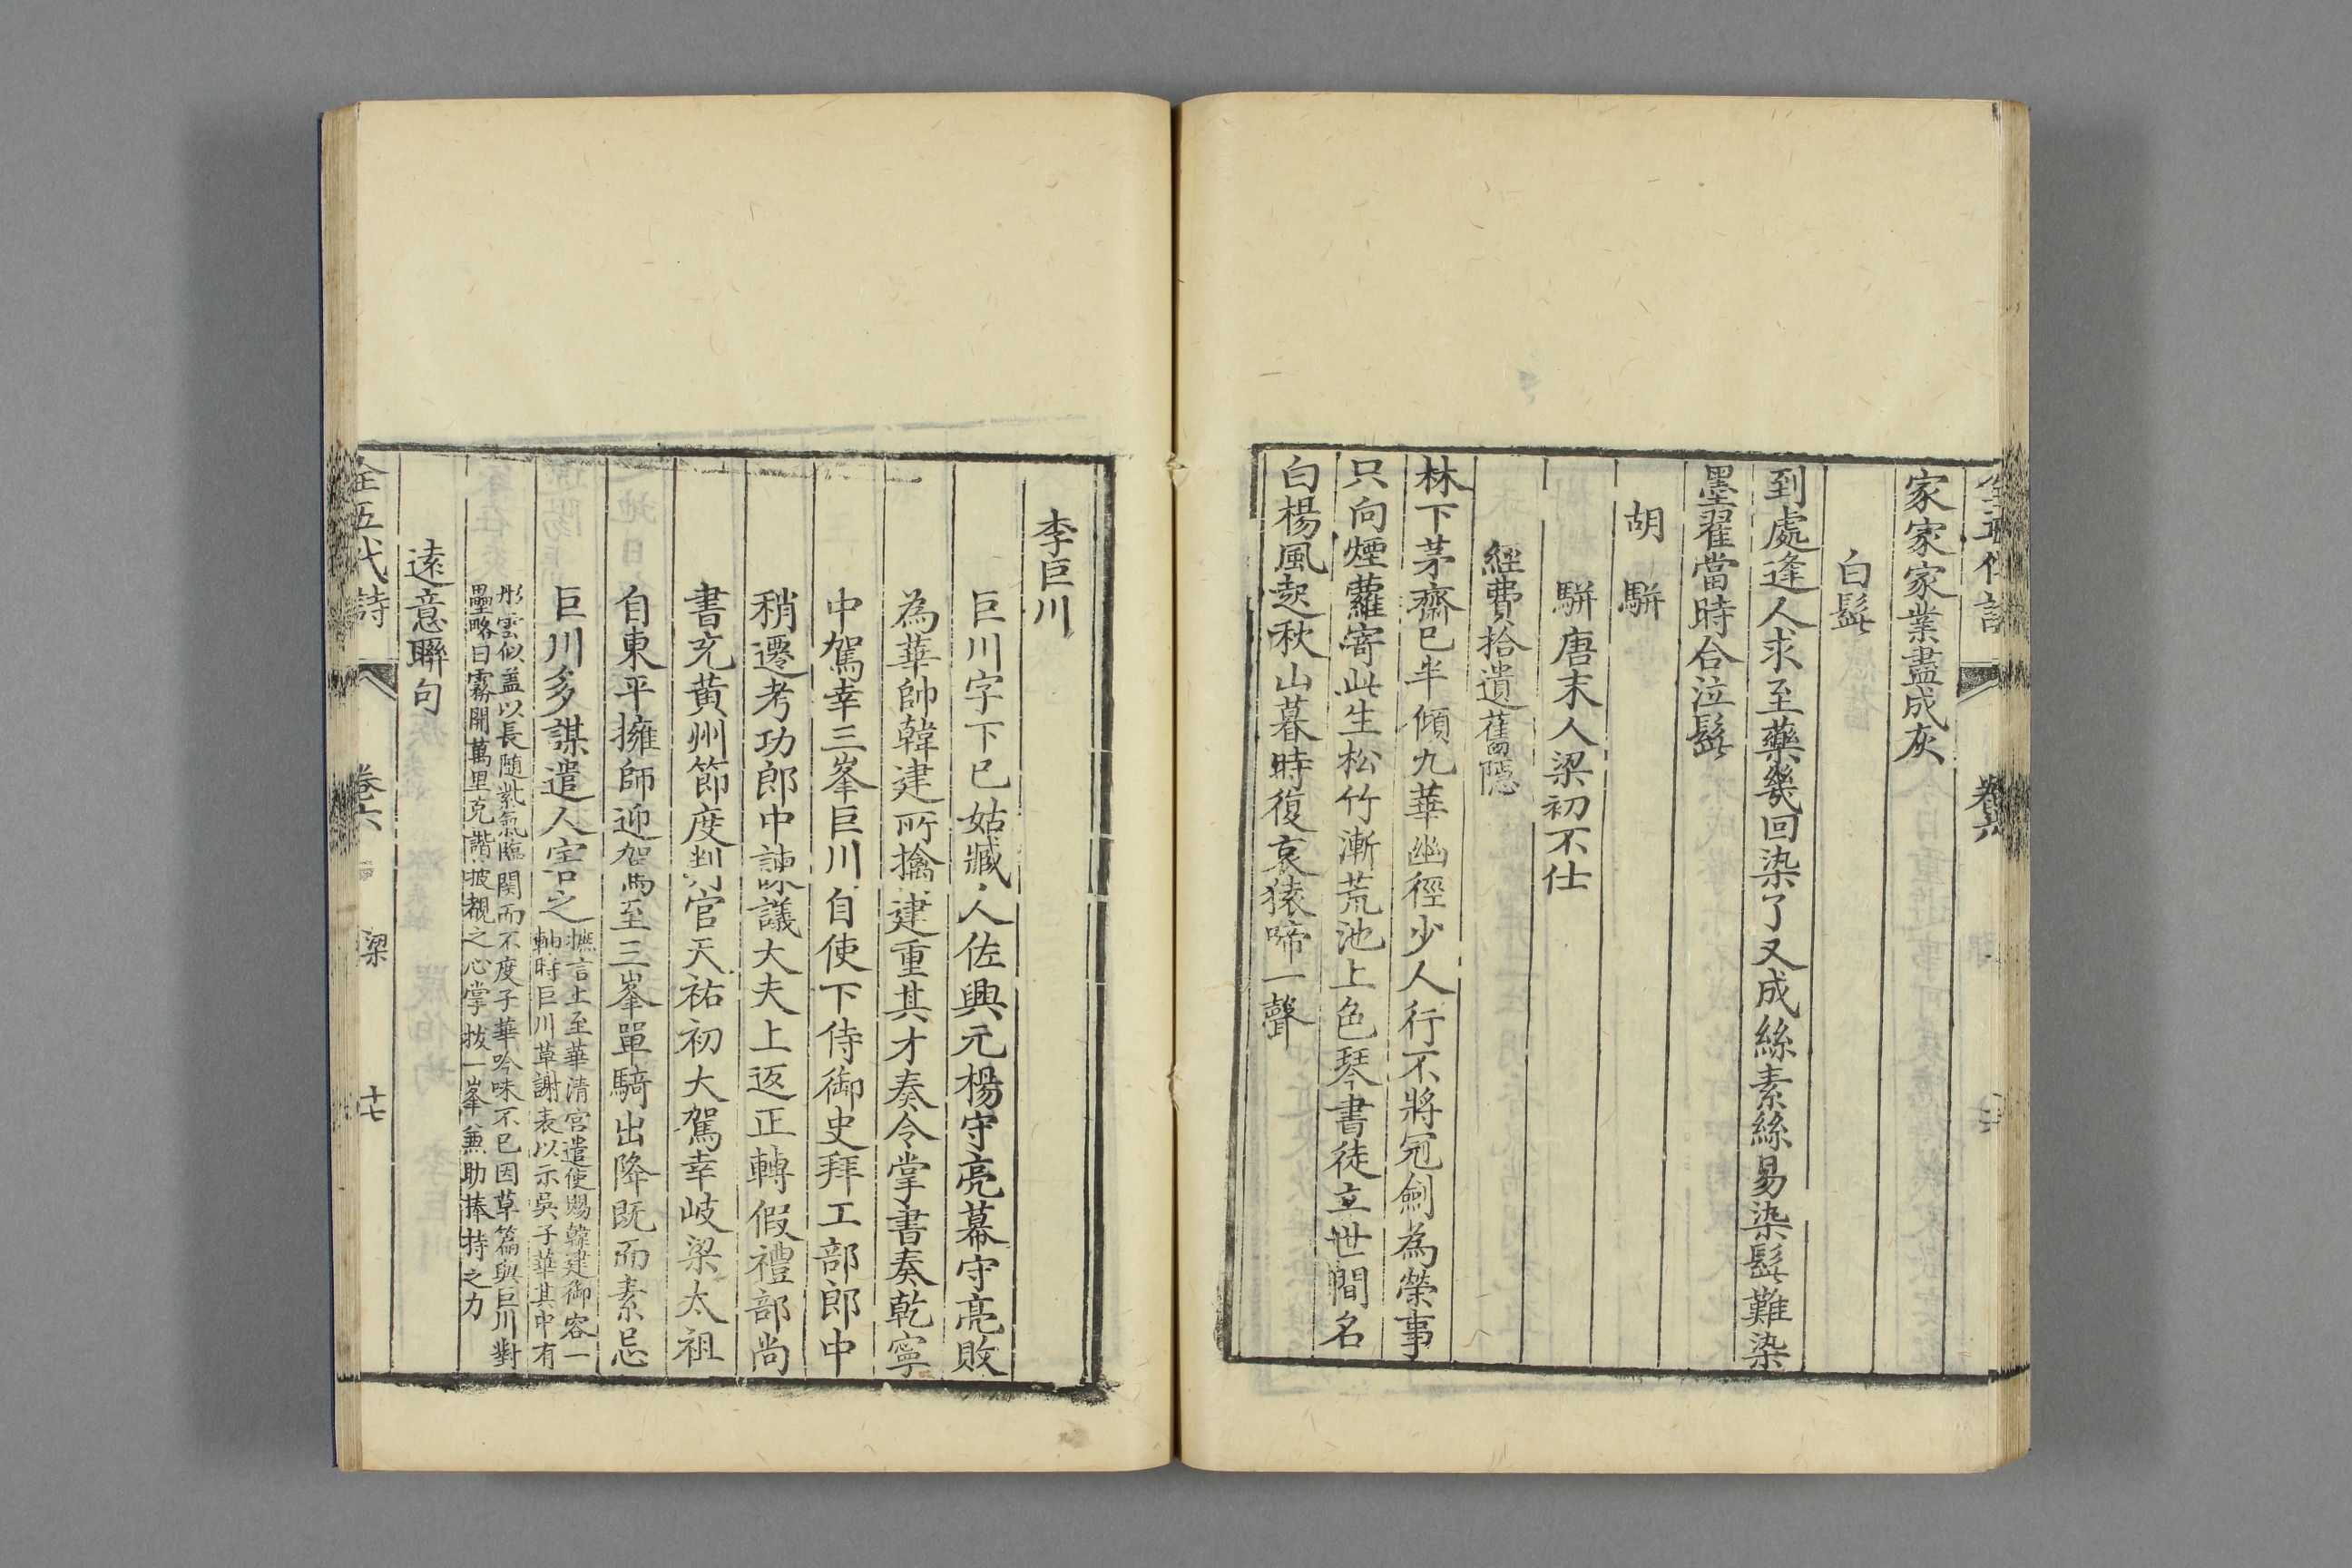 全五代詩 卷六
家家家業盡成灰
白髭
到處逢人求至藥幾回染了又成絲素絲易染髭難染
墨翟當時合泣髭
胡駢
駢唐末人梁初不仕
經費拾遺舊隱
林下茅齋已半傾九華幽徑少人行不將冠劍為榮事
只向煙蘿寄此生松竹漸荒池上色琴書徒立世間名
白楊風起秋山暮時復哀猿啼一聲
李巨川
巨川字下巳姑臧人佐興元楊守亮幕守亮敗
為華帥韓建所擒建重其才奏令掌書奏乾寧
中駕幸三峯巨川自使下侍御史拜工部郎中
稍遷考功郎中諫議大夫上返正轉假禮部尚
書充黃州節度判官天祐初大駕幸岐梁太祖
自東平擁師迎駕至三峯單騎出降既而素忌
巨川多謀遣人害之
摭言上至華清宮遣使賜韓建御容一
軸時巨川草謝表以示吳子華其中有
彤雲似蓋以長隨紫氣臨関而不度子華吟味不已因草篇與巨川對
壘略曰霧開萬里克諧披覩之心掌拔一峯兼助捧持之力
遠意聯句
全五代詩 卷六 梁 十七